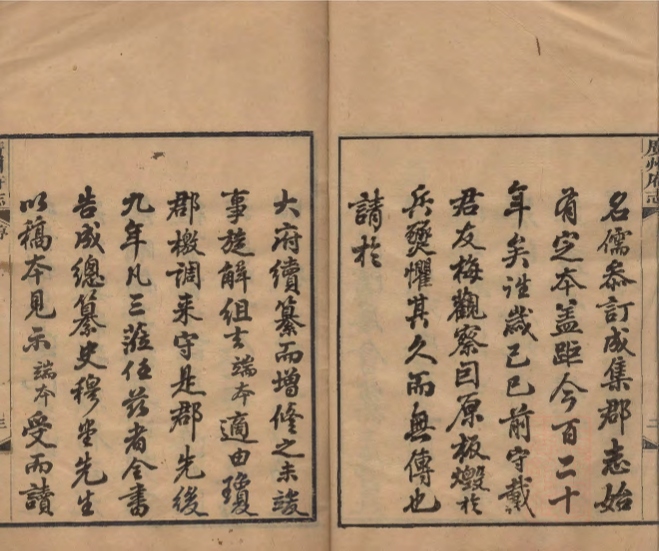 廣州府志
二
名儒叅訂成集郡志始
有定本蓋距今百二十
年矣往歲己巳前守戴
君友梅觀察因原板燬於
兵燹懼其久而無傳也
請於
大府續纂而增修之未竣
事旋解組去端本適由瓊
郡檄調來守是郡先後
九年凡三蒞任茲者全書
告成總纂史穆堂先生
以稿本見示端本受而讀
廣州府志
序
三